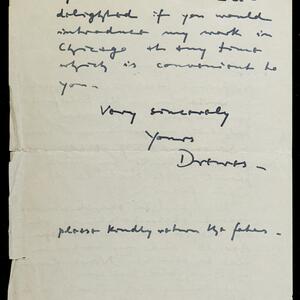 delighted if you would
introduce my work in
Chicago at any time
which is convenient to
you —
Very sincerely
Yours
Drewes —
please kindly return the fotos —